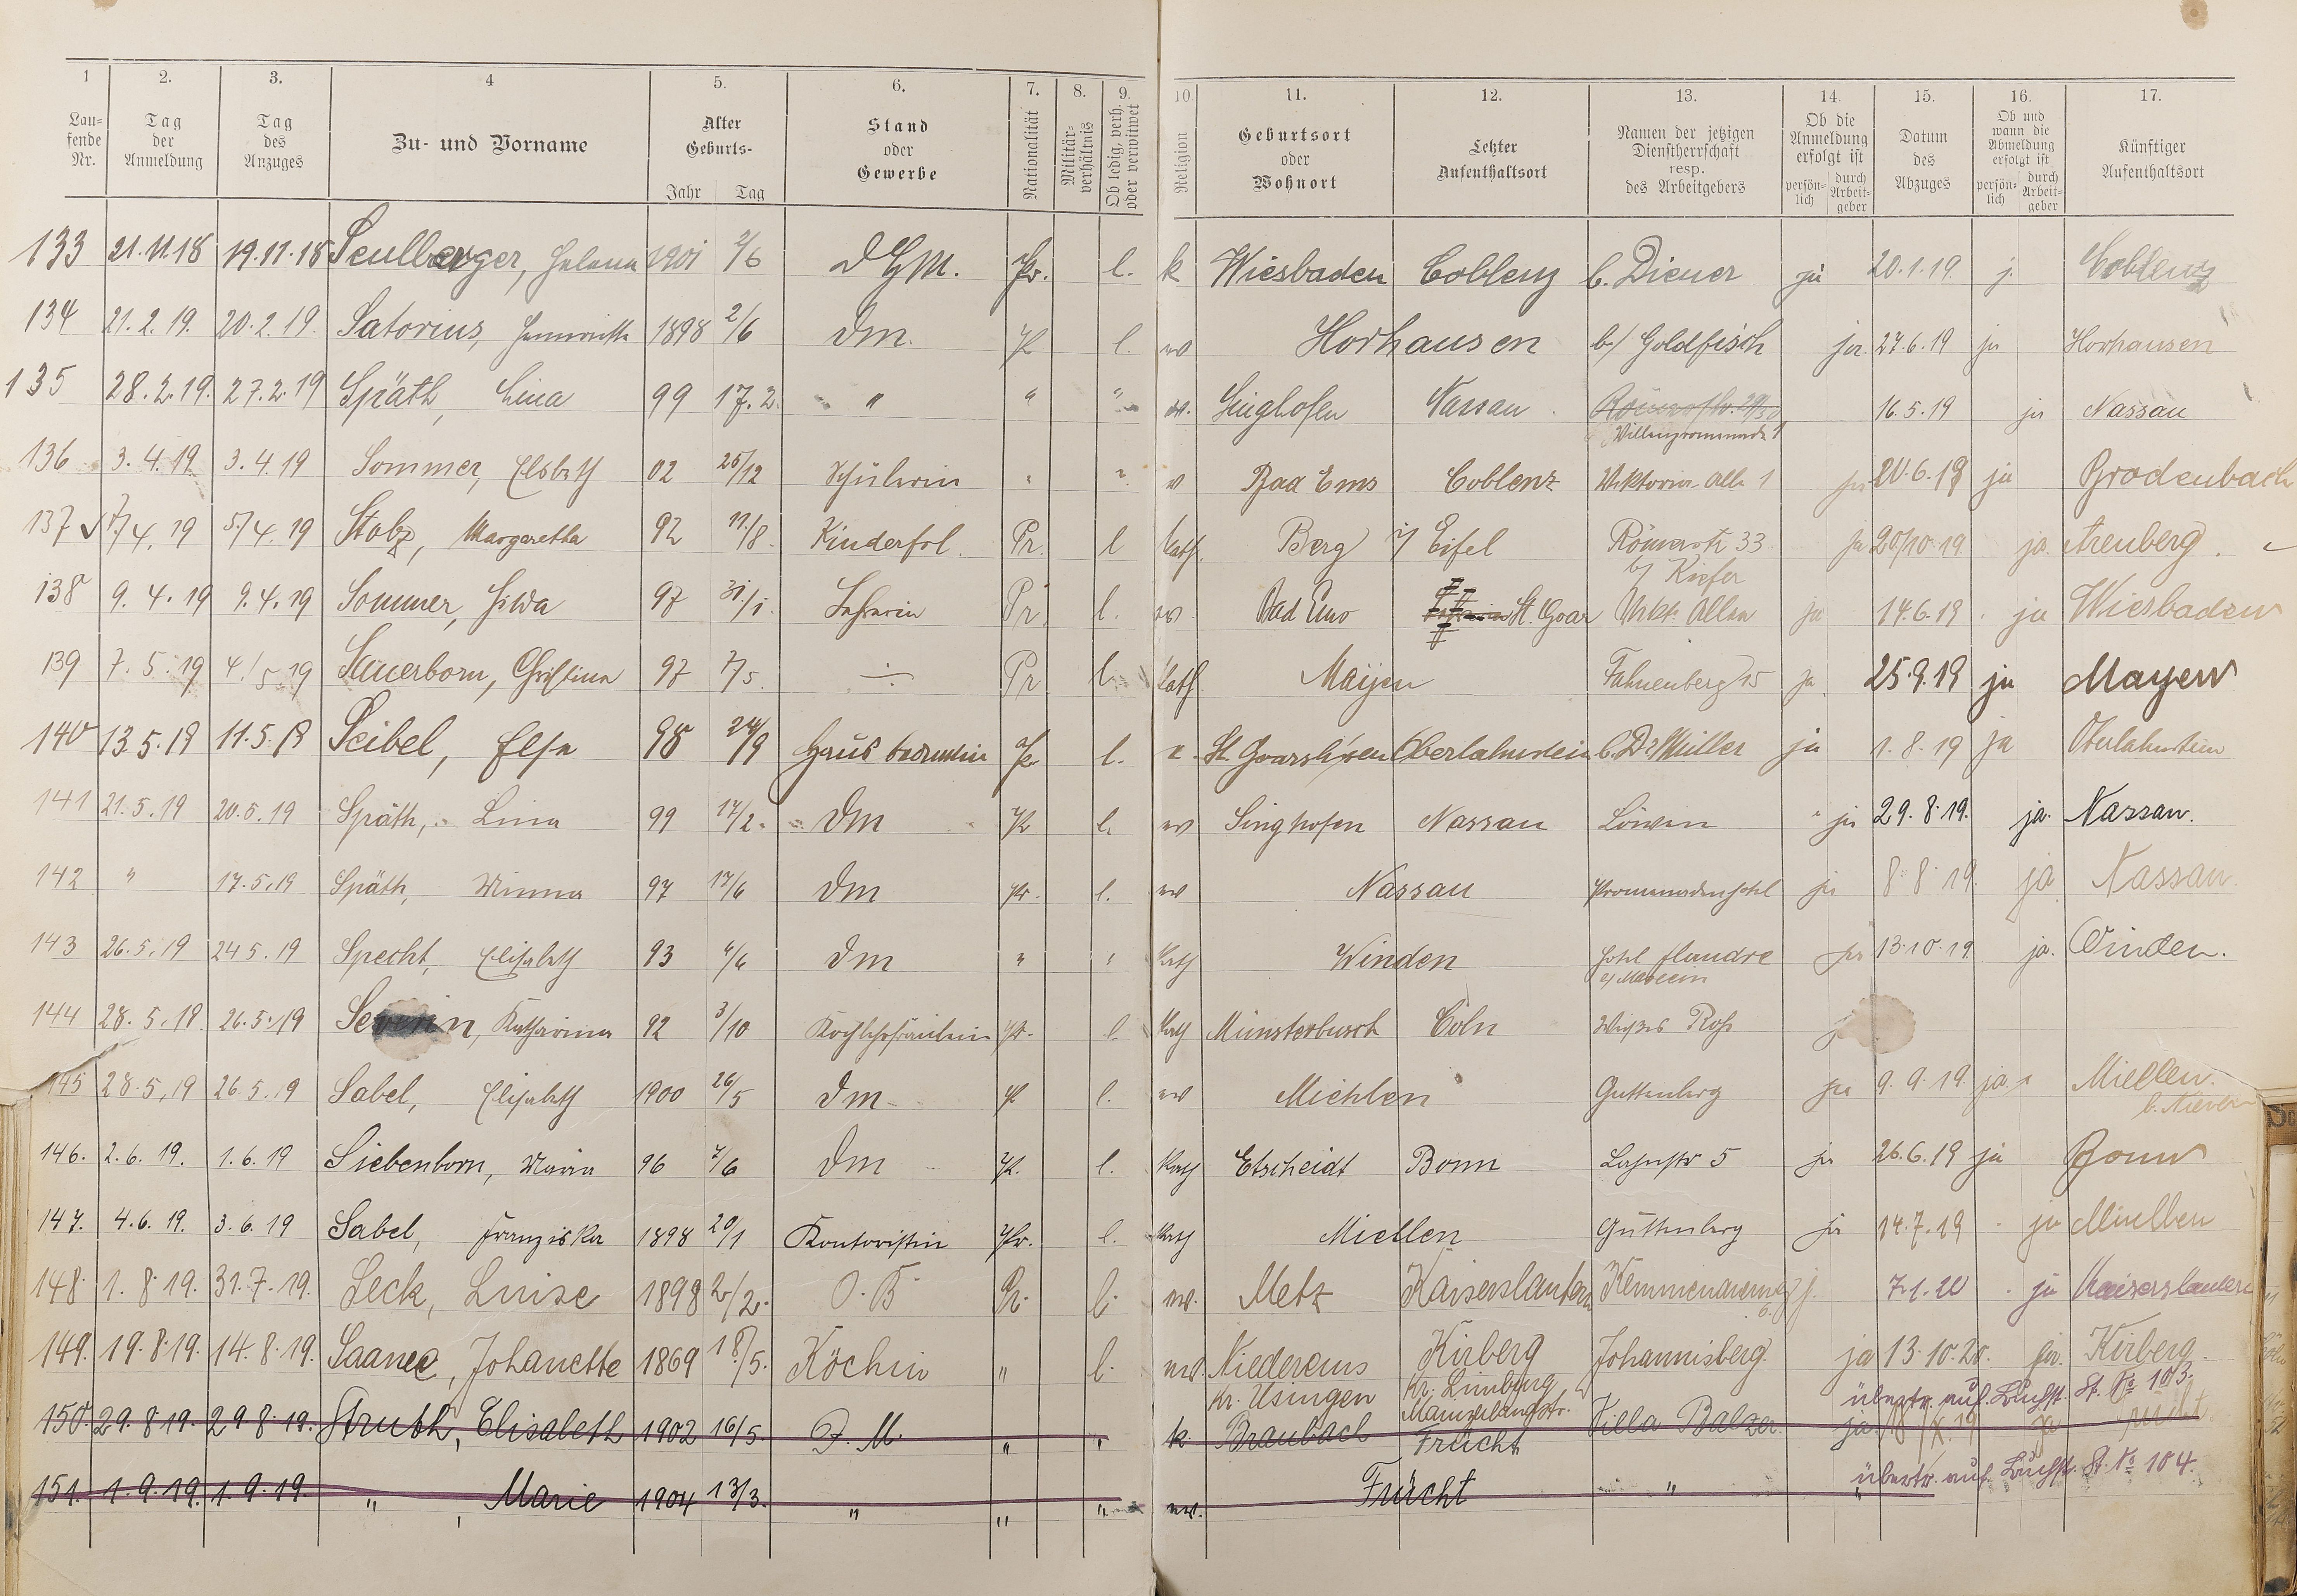 1 2. 3. 4 5. 6. 7. 8. 9. 10 11. 12. 13. 14. 15. 16. 17.
Laufende Nr. Tag der Anmeldung Tag des Anzuges Zu- und Vorname Alter Geburts- Jahr Tag Stand oder Gewerbe Nationalität Militärverhältnis Ob ledig, verh. oder verwitwet Religion Geburtsort oder Wohnort Letzter Aufenthaltsort Namen der jetzigen Dienstherrschaft resp. des Arbeitgebers Ob die Anmeldung erfolgt ist persönlich durch Arbeitgeber Datum des Abzuges Ob und wann die Abmeldung erfolgt ist persönlich durch Arbeitgeber Künftiger Aufenthaltsort
133 21.11.18 19.11.18 Seulberger, Helena 1901 2/6 Pr. l. k Wiesbaden Coblenz b. Diener ja 20.1.19. j. Coblenz
134 21.2.19. 20.2.19. Satorius, Henriette 1898 2/6 Dm. Pr l. ev Horhausen b/ Goldfisch ja 27.6.19 ja Horhausen
135 28.2.19. 27.2.19 Späth, Lina 99 17.2. " " " ev. Singhofen Nassau. Römerstr. 29/30
Villenpromenade 1 16.5.19 ja Nassau
136 3.4.19 3.4.19 Sommer, Elsbeth 02 25/12 Schülerin " " ev Bad Ems Coblenz Viktoria-Allee 1 ja 20.6.19 ja Brodenbach
137 7/4.19 5/4.19 Stolz, Margaretha 92 11/8. Kinderfrl. Pr. l kath. Berg i/ Eifel Römerstr 33
b/ Kiefer ja 20/10.19 ja. Arenberg.
138 9.4.19 9.4.19 Sommer, Hilda 97 31/1. Lehrerin Pr. l. ev. Bad Ems St. Goar Vikt. Allee ja 14.6.19. ja Wiesbaden
139 7.5.19 4/5.19 Sauerborn, Christina 97 7/5. Pr l. kath. Maijen Fahnenberg 15 ja. 25.9.19 ja Mayen
140 13.5.19 11.5.19 Seibel, Elsa 98 24/9 Haus Pr l. St. Goarshausen Oberlahnstein b. Dr Müller ja 1.8.19 ja Oberlahnstein
141 21.5.19 20.5.19 Späth, Lina 99 17/2. Dm Pr l. ev Singhofen Nassau Löwen ja 29.8.19. ja. Nassau.
142 " 17.5.19 Späth, Minna 97 17/6 Dm Pr. l. ev Nassau Promenadenhotel ja 8.8.19. ja Nassau.
143 26.5.19 24 5.19 Specht, Elisabeth 93 4/6 Dm " " kath Winden Hotel flandre ja 13.10.19 ja. Winden.
144 28.5.19. 26.5.19 Severin, Katharina 92 3/10 Kochlehrfräulein Pr. l. kath Münsterbusch Cöln Weißes Roß
145 28.5.19 26.5.19 Sabel, Elisabeth 1900 26/5 Dm Pr l. ev Miehlen Guttenberg ja 9.9.19. ja Miellen.
b. Nievern
146. 2.6.19. 1.6.19 Siebenborn, Maria 96 7/6 Dm Pr. l. kath Etscheidt Bonn Lahnstr 5 ja 26.6.19 ja Bonn
147. 4.6.19. 3.6.19 Sabel, Franziska 1898 20/1 Kontoristin Pr. l. kath Miellen Guttenberg ja 14.7.19. ja Miellen
148. 1.8.19. 31.7.19. Seck, Luise 1898 2/2. O.B. Pr. l. ev. Metz Kaiserslautern j. 7.1.20. ja Kaiserslautern
149. 19.8.19. 14.8.19. Saame, Johanette 1869 18/5. Köchin " l. ev. Niederems
Kr. Usingen Kirberg
Kr. Limburg Johannisberg. ja 13.10.20. ja. Kirberg.
übertr. auf Buchst. St. No 103.
150. 29.8.19. 29.8.19. Struth, Elisabeth 1902 16/5. D.M. " " k. Braubach Frücht Villa Balzer. ja
übertr. auf Buchst. St. No 104.
151. 1.9.19. 1.9.19. ", Marie 1904 13/3. " " " ev. Frücht " "